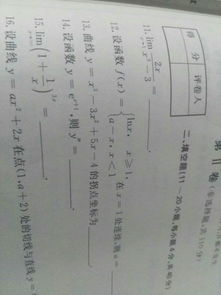 第 II 卷(非选择题,共110分)
得 分 评卷人
二、填空题(11~20小题,每小题4分,共40分)
11. lim 2x / x - 3 =
12. 设函数 f(x) = { lnx, x ≥ 1, a - x, x < 1 在 x = 1 处连续,则 a =
13. 曲线 y = x³ - 3x² + 5x - 4 的拐点坐标为
14. 设函数 y = eˣ⁺¹, 则 y″ =
15. lim (1 + 1/x)³ˣ =
16. 设曲线 y = ax² + 2x 在点(1, a + 2) 处的切线与直线 y =